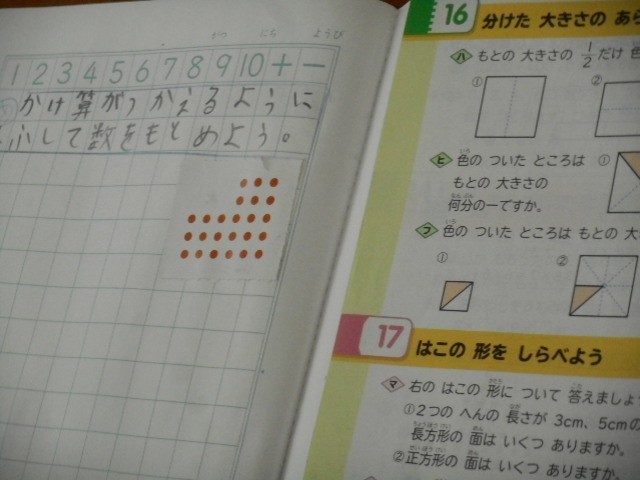 がつ にち ようび
1 2 3 4 5 6 7 8 9 10 + −
かけ算がつかえるように
して数をもとめよう。
16 分けた 大きさの あら
ハ もとの 大きさの 1/2だけ 色
① ②
ヒ 色の ついた ところは ①
もとの 大きさの
何分の一ですか。
フ 色の ついた ところは もとの 大
① ②
17 はこの 形を しらべよう
マ 右の はこの 形に ついて 答えましょ
①2つの へんの 長さが 3cm、5cmの
長方形の 面は いくつ ありますか。
②正方形の 面は いくつ ありますか。